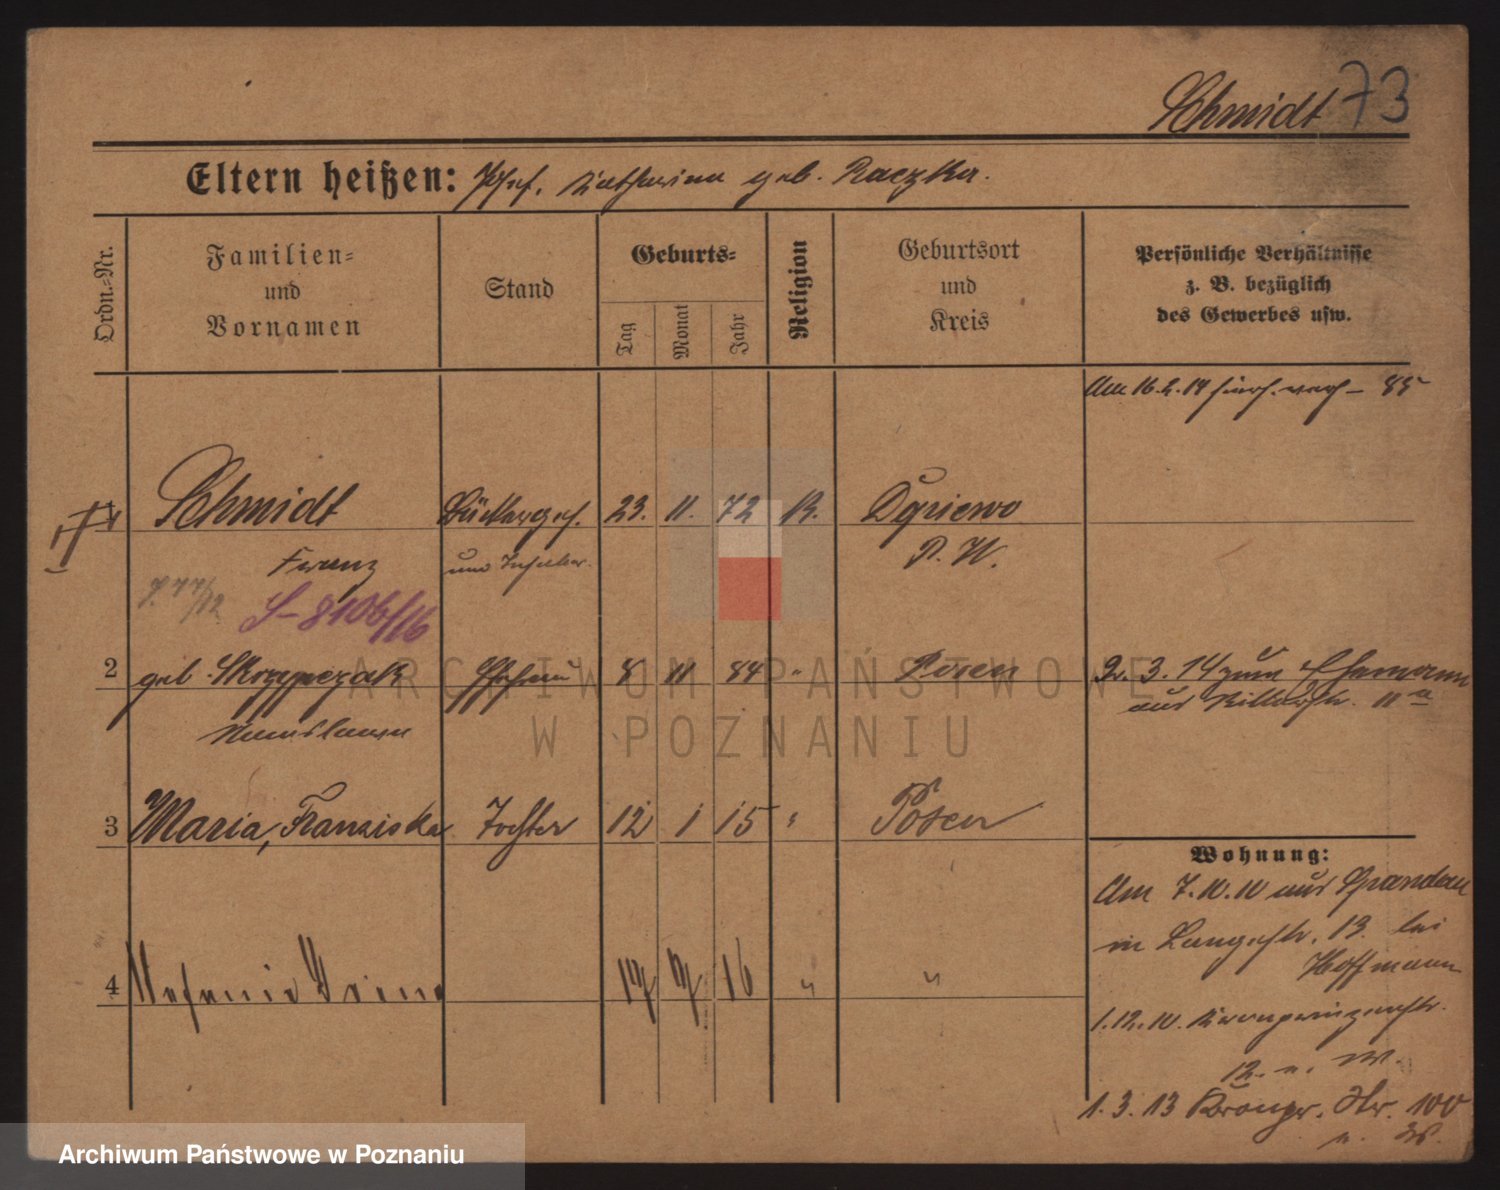 Schmidt 73
Eltern heißen: Josef, Katharina geb. Raczka.
Ordn.-Nr.
Familien-
und
Vornamen
Stand
Geburts-
Tag
Monat
Jahr
Religion
Geburtsort
und
Kreis
Persönliche Verhältnisse
z. B. bezüglich
des Gewerbes usw.
Am 16.2.14
1 Schmidt 23. 11. 72 K.
Franz und
P. W.
S-8106/16
2 geb. Skrzypczak Ehefrau 8 11 84 " Posen 3. 14 zum Ehemann
aus Ritterstr. 11a
3 Maria, Franziska Tochter 12 1 15 " Posen
Wohnung:
Am 7.10.10 aus Spandau
in Langestr. 13. bei
Hoffmann
4 Stefanie Irene 17 7 16 " "
1.12.10. Kronprinzenstr.
12.
1.3.13 Kronpr. Str. 100
ARCHIWUM PAŃSTWOWE
W POZNANIU
Archiwum Państwowe w Poznaniu